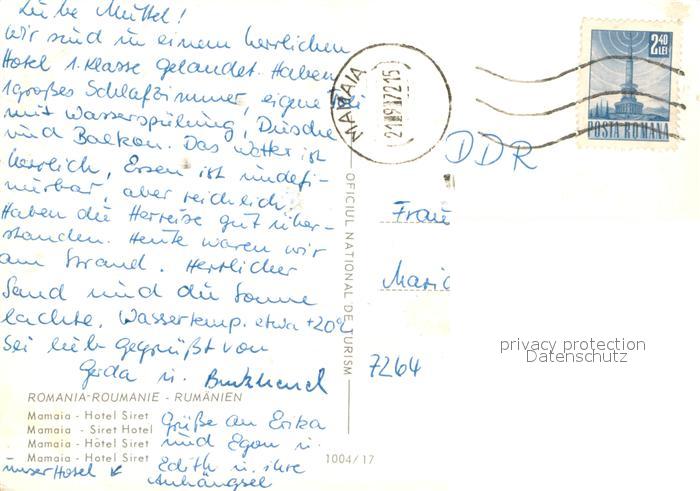 Liebe Muttel!
Wir sind in einem herrlichen
Hotel 1. Klasse gelandet. Haben
1 großes Schlafzimmer, eigene
mit Wasserspülung, Dusche
und Balkon. Das Wetter ist
herrlich, Essen ist undefi-
nierbar, aber reichlich.
Haben die Herreise gut über-
standen. Heute waren wir
am Strand. Herrlicher
Sand und die Sonne
lachte. Wassertemp. etwa +20°C
Sei lieb gegrüßt von
Gerda u. Burkhard
ROMANIA-ROUMANIE - RUMÄNIEN
Mamaia - Hotel Siret
Mamaia - Siret Hotel
Mamaia - Hôtel Siret
Mamaia - Hotel Siret
unser Hotel
Grüße an Erika
und Egon u.
Edith u. ihre
Anhängsel
1004/17
OFICIUL NATIONAL DE TURISM
MAMAIA
2,40
LEI
POSTA ROMANA
DDR
Frau
Marie
7264
privacy protection
Datenschutz